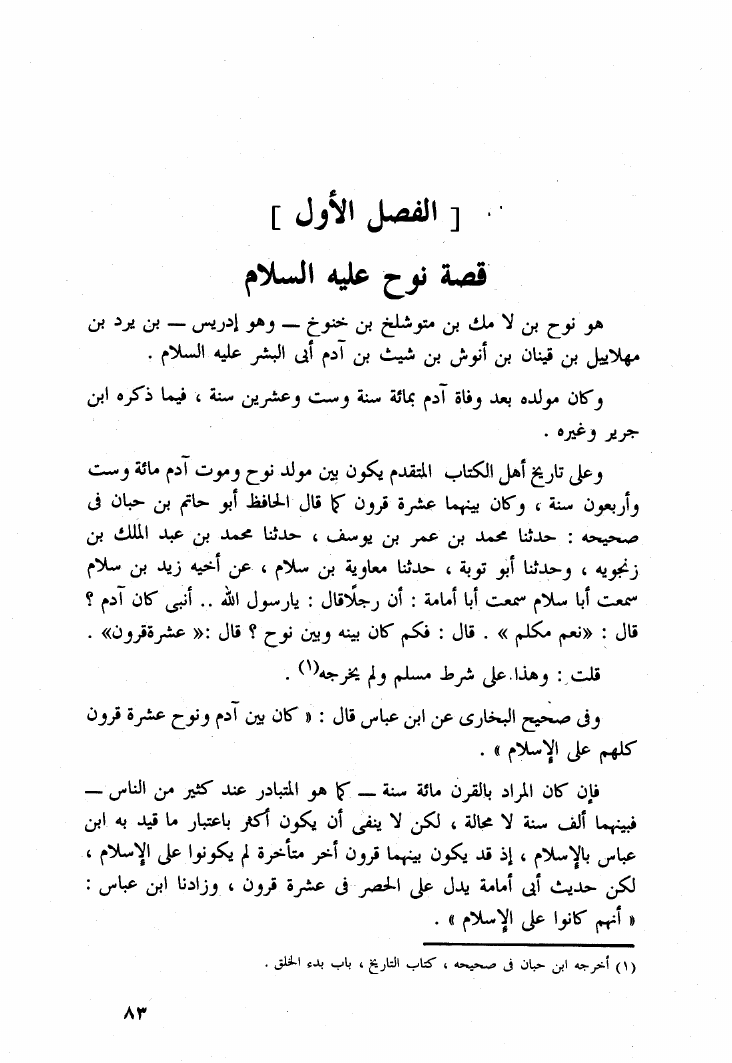 [ الفصل الأول ]
قصة نوح عليه السلام
هو نوح بن لا مك بن متوشلخ بن خنوخ – وهو إدريس – بن يرد بن
مهلاييل بن قينان بن أنوش بن شيث بن آدم أبى البشر عليه السلام .
وكان مولده بعد وفاة آدم بمائة سنة وست وعشرين سنة ، فيما ذكره ابن
جرير وغيره .
وعلى تاريخ أهل الكتاب المتقدم يكون بين مولد نوح وموت آدم مائة وست
وأربعون سنة ، وكان بينهما عشرة قرون كما قال الحافظ أبو حاتم بن حبان فى
صحيحه : حدثنا محمد بن عمر بن يوسف ، حدثنا محمد بن عبد الملك بن
زنجويه ، وحدثنا أبو توبة ، حدثنا معاوية بن سلام ، عن أخيه زيد بن سلام
سمعت أبا سلام سمعت أبا أمامة : أن رجلًاقال : يارسول الله .. أنبى كان آدم ؟
قال : «نعم مكلم » . قال : فكم كان بينه وبين نوح ؟ قال :« عشرةقرون» .
قلت : وهذا على شرط مسلم ولم يخرجه(١) .
وفى صحيح البخارى عن ابن عباس قال : « كان بين آدم ونوح عشرة قرون
كلهم على الإسلام » .
فإن كان المراد بالقرن مائة سنة – كما هو المتبادر عند كثير من الناس –
فبينهما ألف سنة لا محالة ، لكن لا ينفى أن يكون أكثر باعتبار ما قيد به ابن
عباس بالإسلام ، إذ قد يكون بينهما قرون أخر متأخرة لم يكونوا على الإسلام ،
لكن حديث أبى أمامة يدل على الحصر فى عشرة قرون ، وزادنا ابن عباس :
« أنهم كانوا على الإسلام » .
(١) أخرجه ابن حبان فى صحيحه ، كتاب التاريخ ، باب بدء الخلق .
٨٣